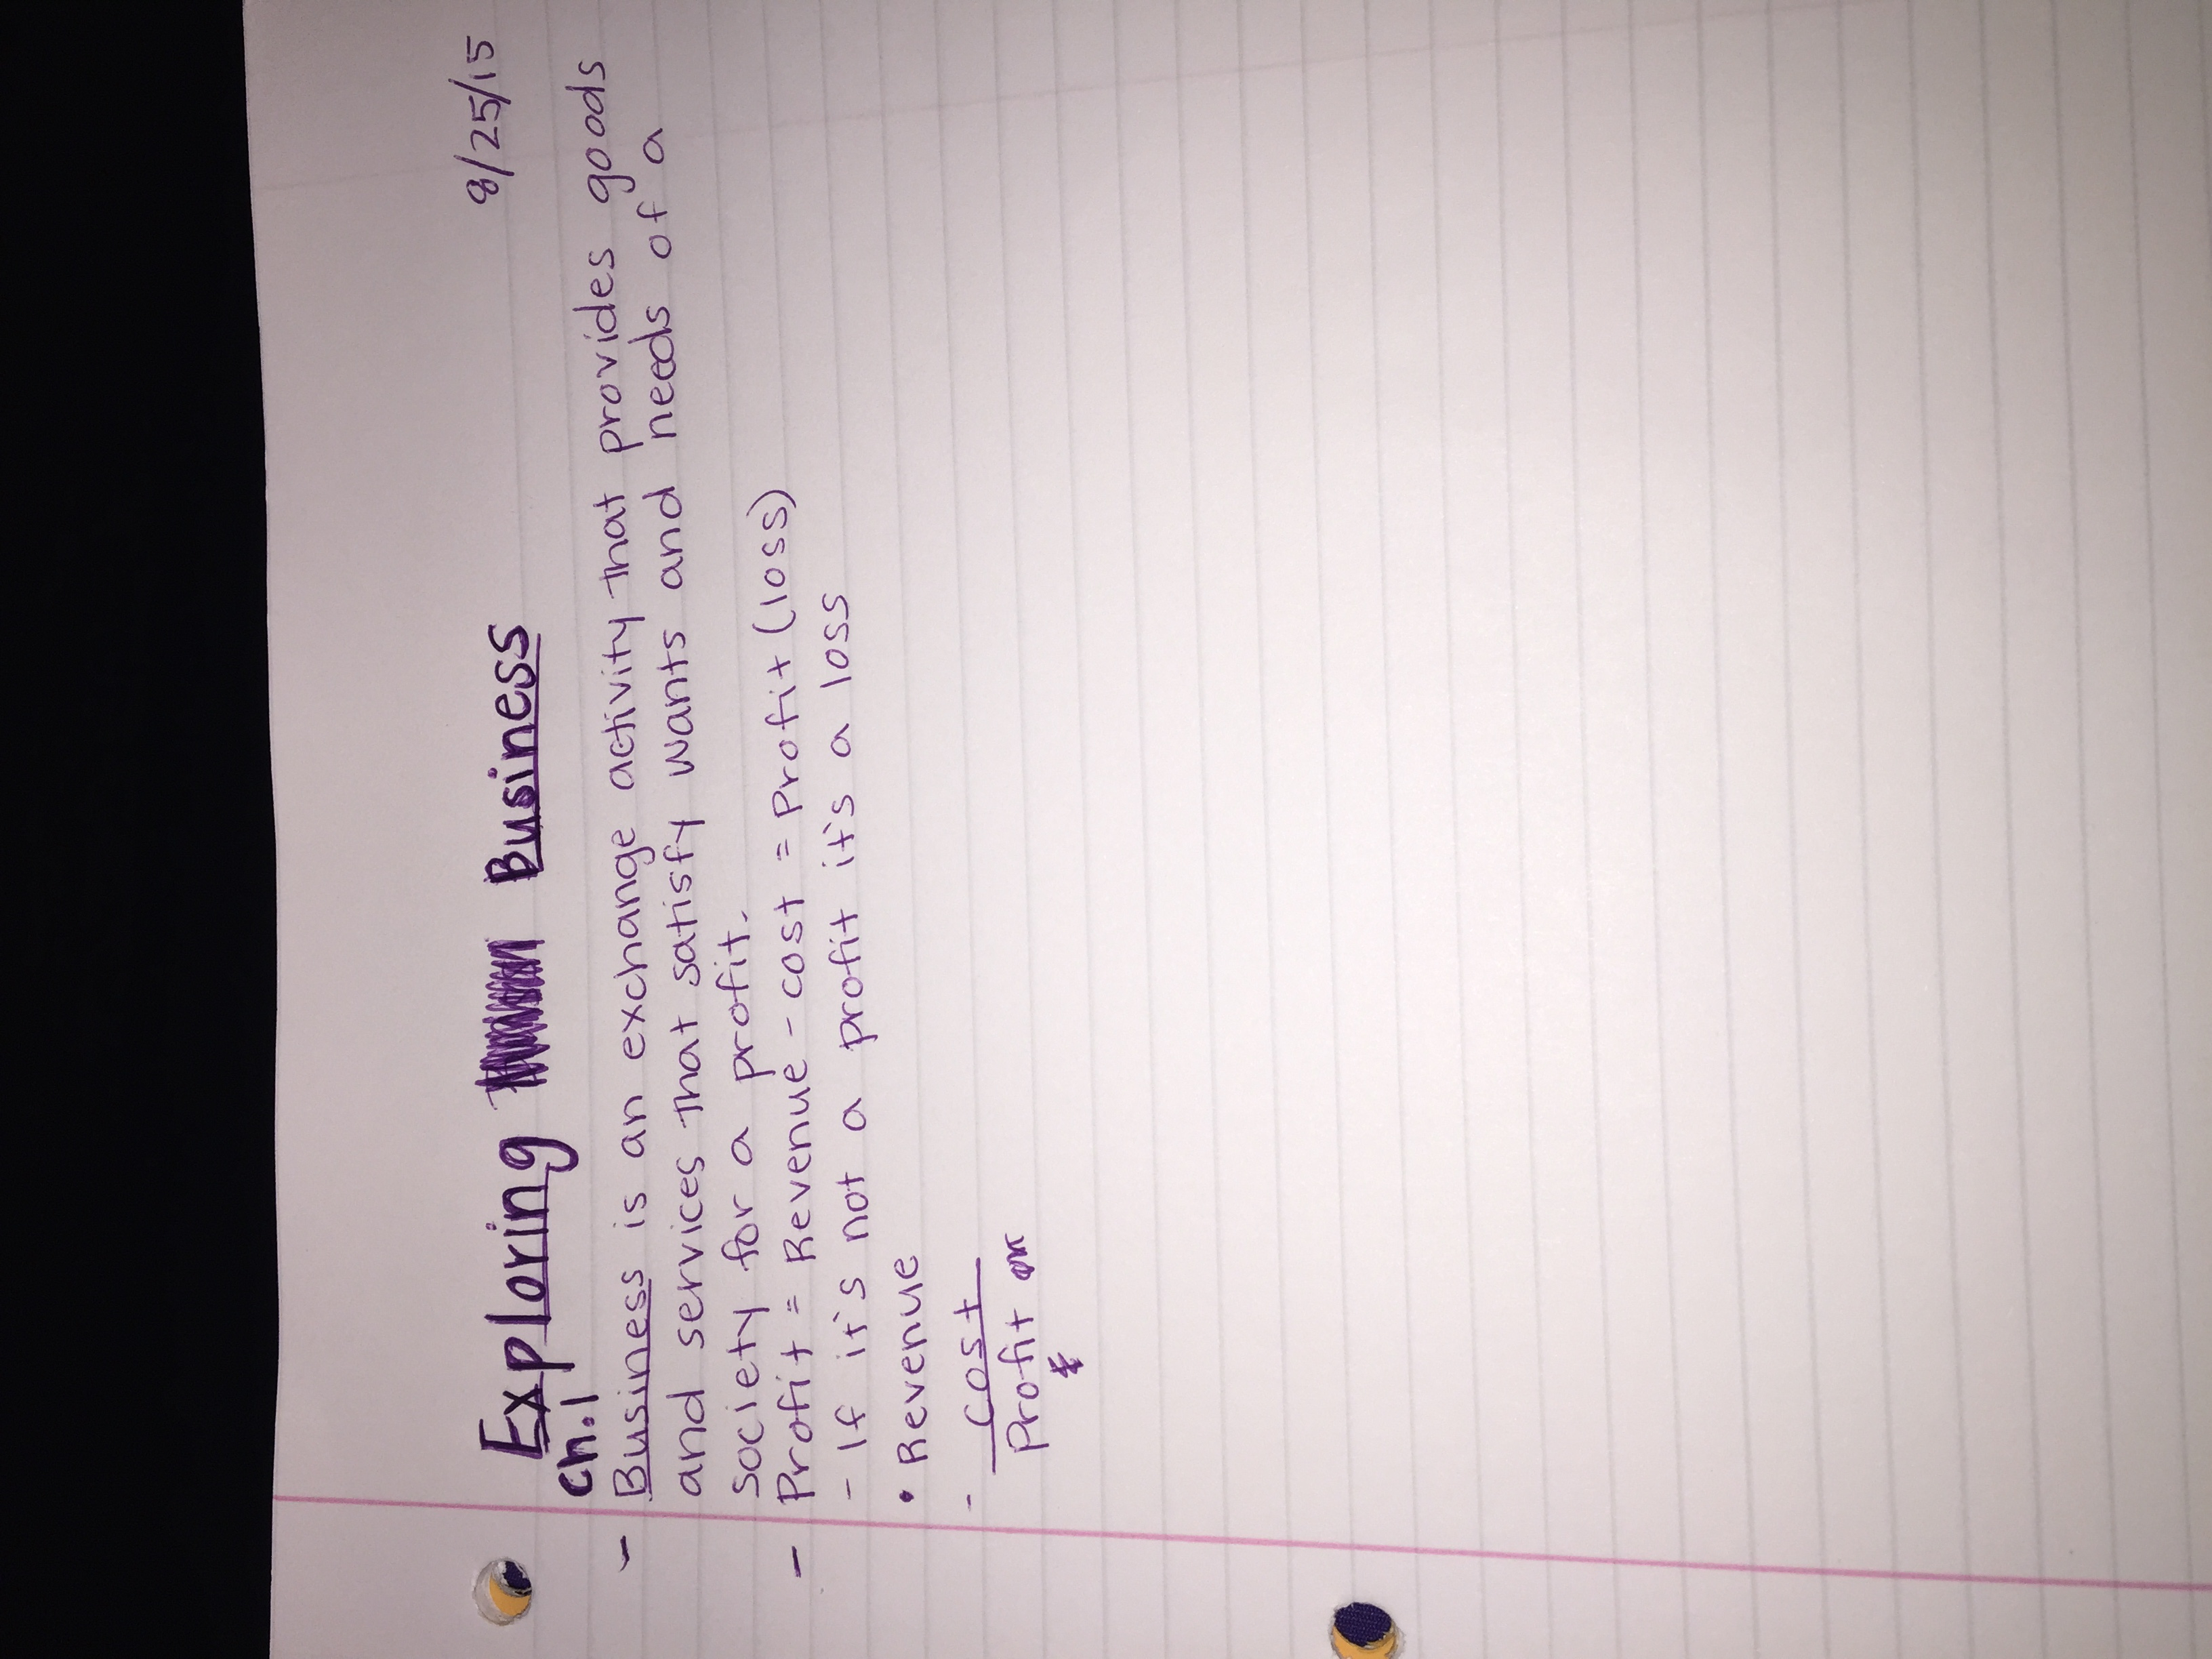 8/25/15
Exploring Business
Ch.1
- Business is an exchange activity that provides goods
and services that satisfy wants and needs of a
society for a profit.
- Profit = Revenue - cost = Profit (loss)
- If it's not a profit it's a loss
• Revenue
- Cost
Profit or